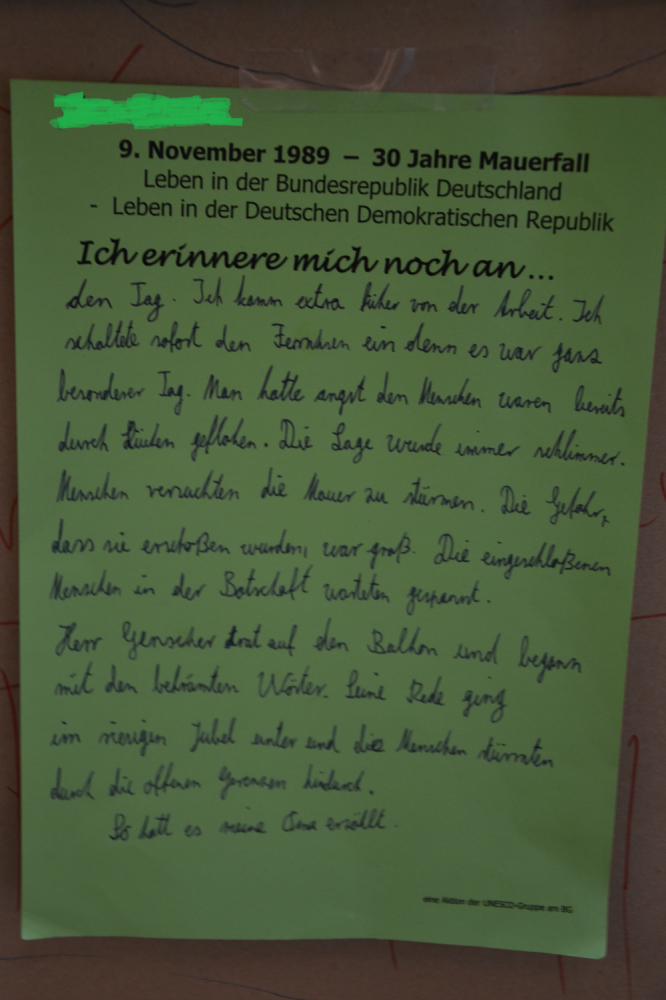 9. November 1989 – 30 Jahre Mauerfall
Leben in der Bundesrepublik Deutschland
- Leben in der Deutschen Demokratischen Republik
Ich erinnere mich noch an ...
den Tag. Ich kamm extra früher von der Arbeit. Ich
schaltete sofort den Fernsehen ein denn es war ganz
besonderer Tag. Man hatte angst den Menschen waren bereits
durch geflohen. Die Lage wurde immer schlimmer.
Menschen versuchten die Mauer zu stürmen. Die Gefahr,
dass sie erschoßen wurden, war groß. Die eingeschloßenen
Menschen in der Botschaft warteten gespannt.
Herr Genscher trat auf den Balkon und begann
mit den Wörter. Seine Rede ging
im riesigen Jubel unter und die Menschen stürmten
durch die offenen hindurch.
So hatt es meine Oma erzählt.
eine Aktion der UNESCO-Gruppe am BG